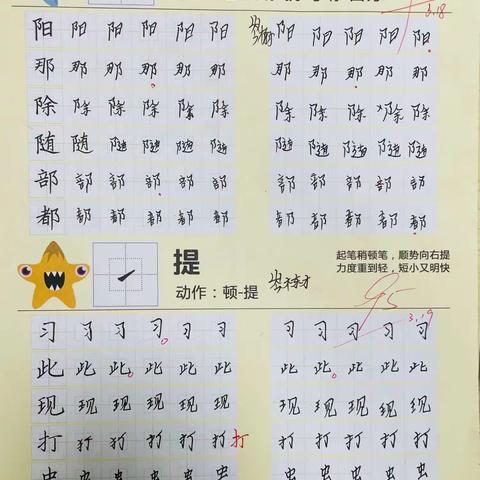 3.18
阳 阳 阳 阳 阳 阳 阳 阳 阳 阳 阳
那 那 那 那 那 那 那 那 那 那 那
除 除 除 除 除 除 除 除 除 除 除
随 随 随 随 随 随 随 随 随 随 随
部 部 部 部 部 部 部 部 部 部 部
都 都 都 都 都 都 都 都 都 都 都
提
动作：顿-提
起笔稍顿笔，顺势向右提
力度重到轻，短小又明快
95
3.19
习 习 习 习 习 习 习 习 习 习 习
此 此 此 此 此 此 此 此 此 此 此
现 现 现 现 现 现 现 现 现 现 现
打 打 打 打 打 打 打 打 打 打 打 打
虫 虫 虫 虫 虫 虫 虫 虫 虫 虫 虫